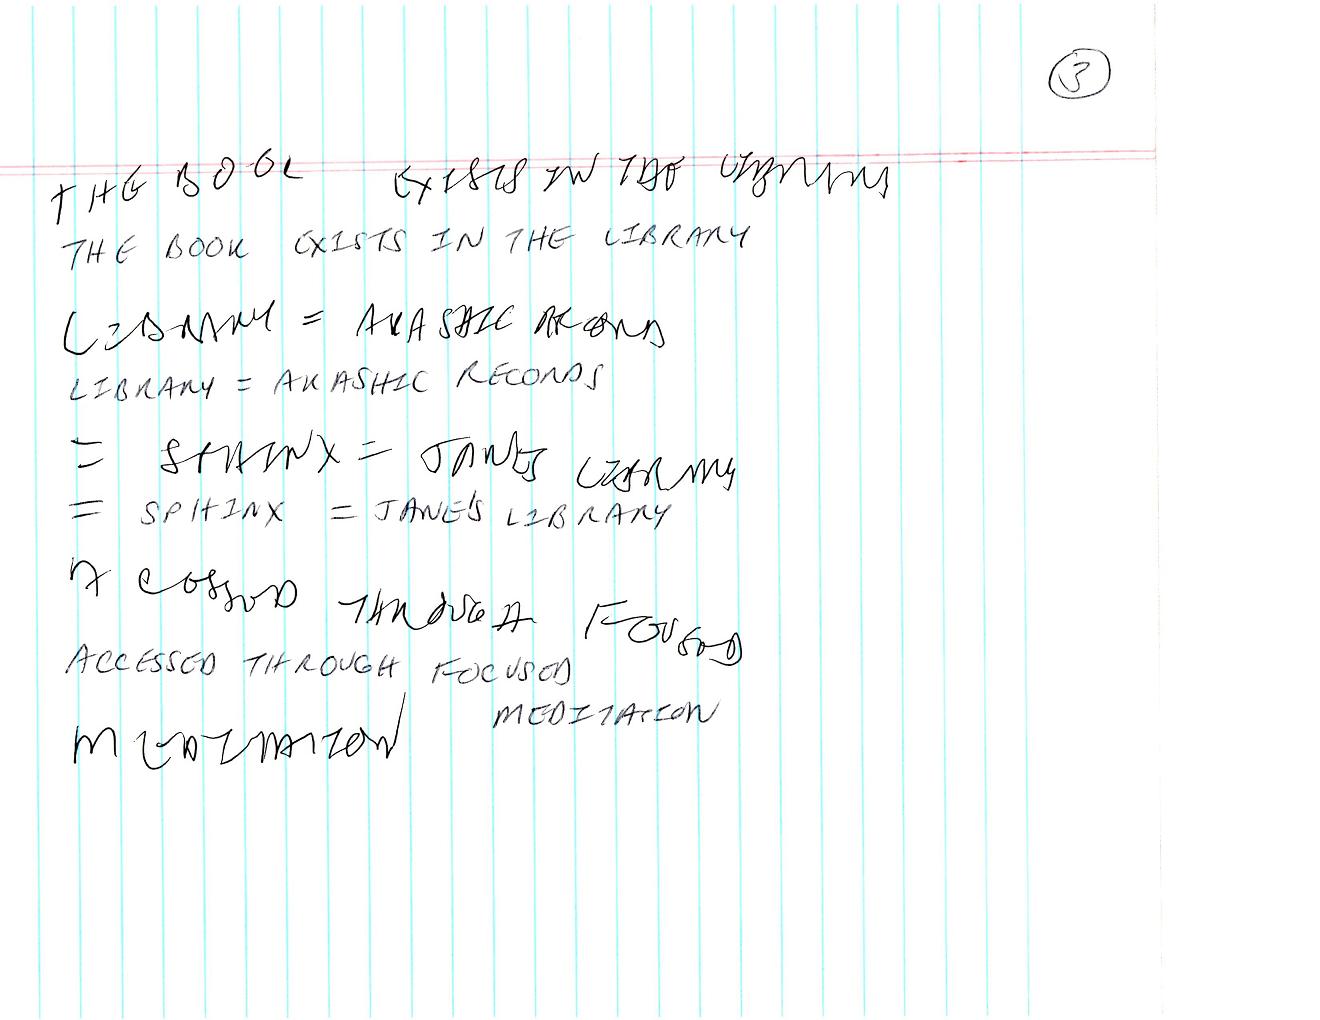 3
THE BOOK EXISTS IN THE LIBRARY
THE BOOK EXISTS IN THE LIBRARY
LIBRARY = AKASHIC RECORD
LIBRARY = AKASHIC RECORDS
= SPHINX = JANES LIBRARY
= SPHINX = JANE'S LIBRARY
ACCESSED THROUGH FOCUSED
ACCESSED THROUGH FOCUSED
MEDITATION
MEDITATION